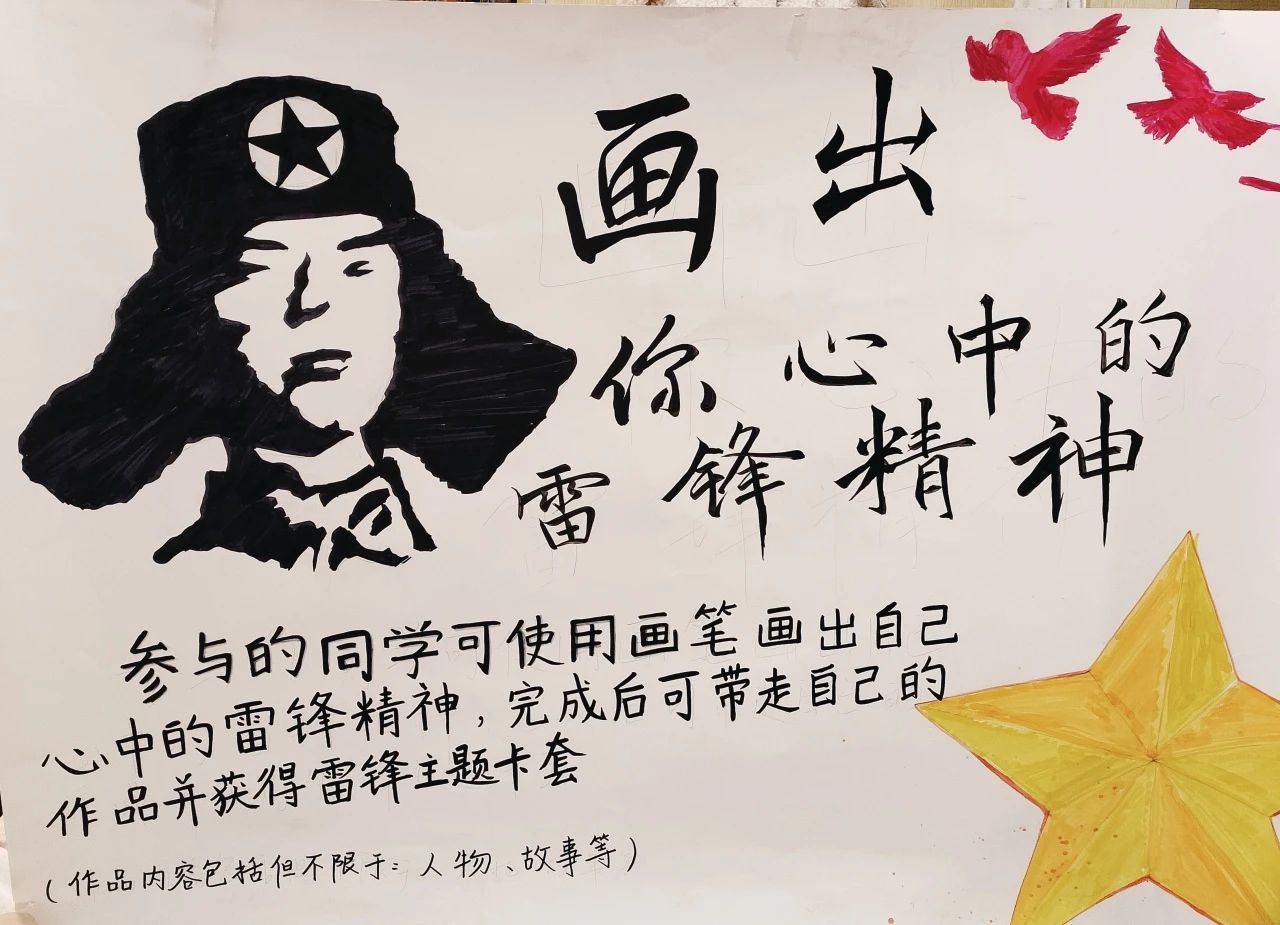 画出
你心中的
雷锋精神
参与的同学可使用画笔画出自己
心中的雷锋精神，完成后可带走自己的
作品并获得雷锋主题卡套
（作品内容包括但不限于：人物、故事等）